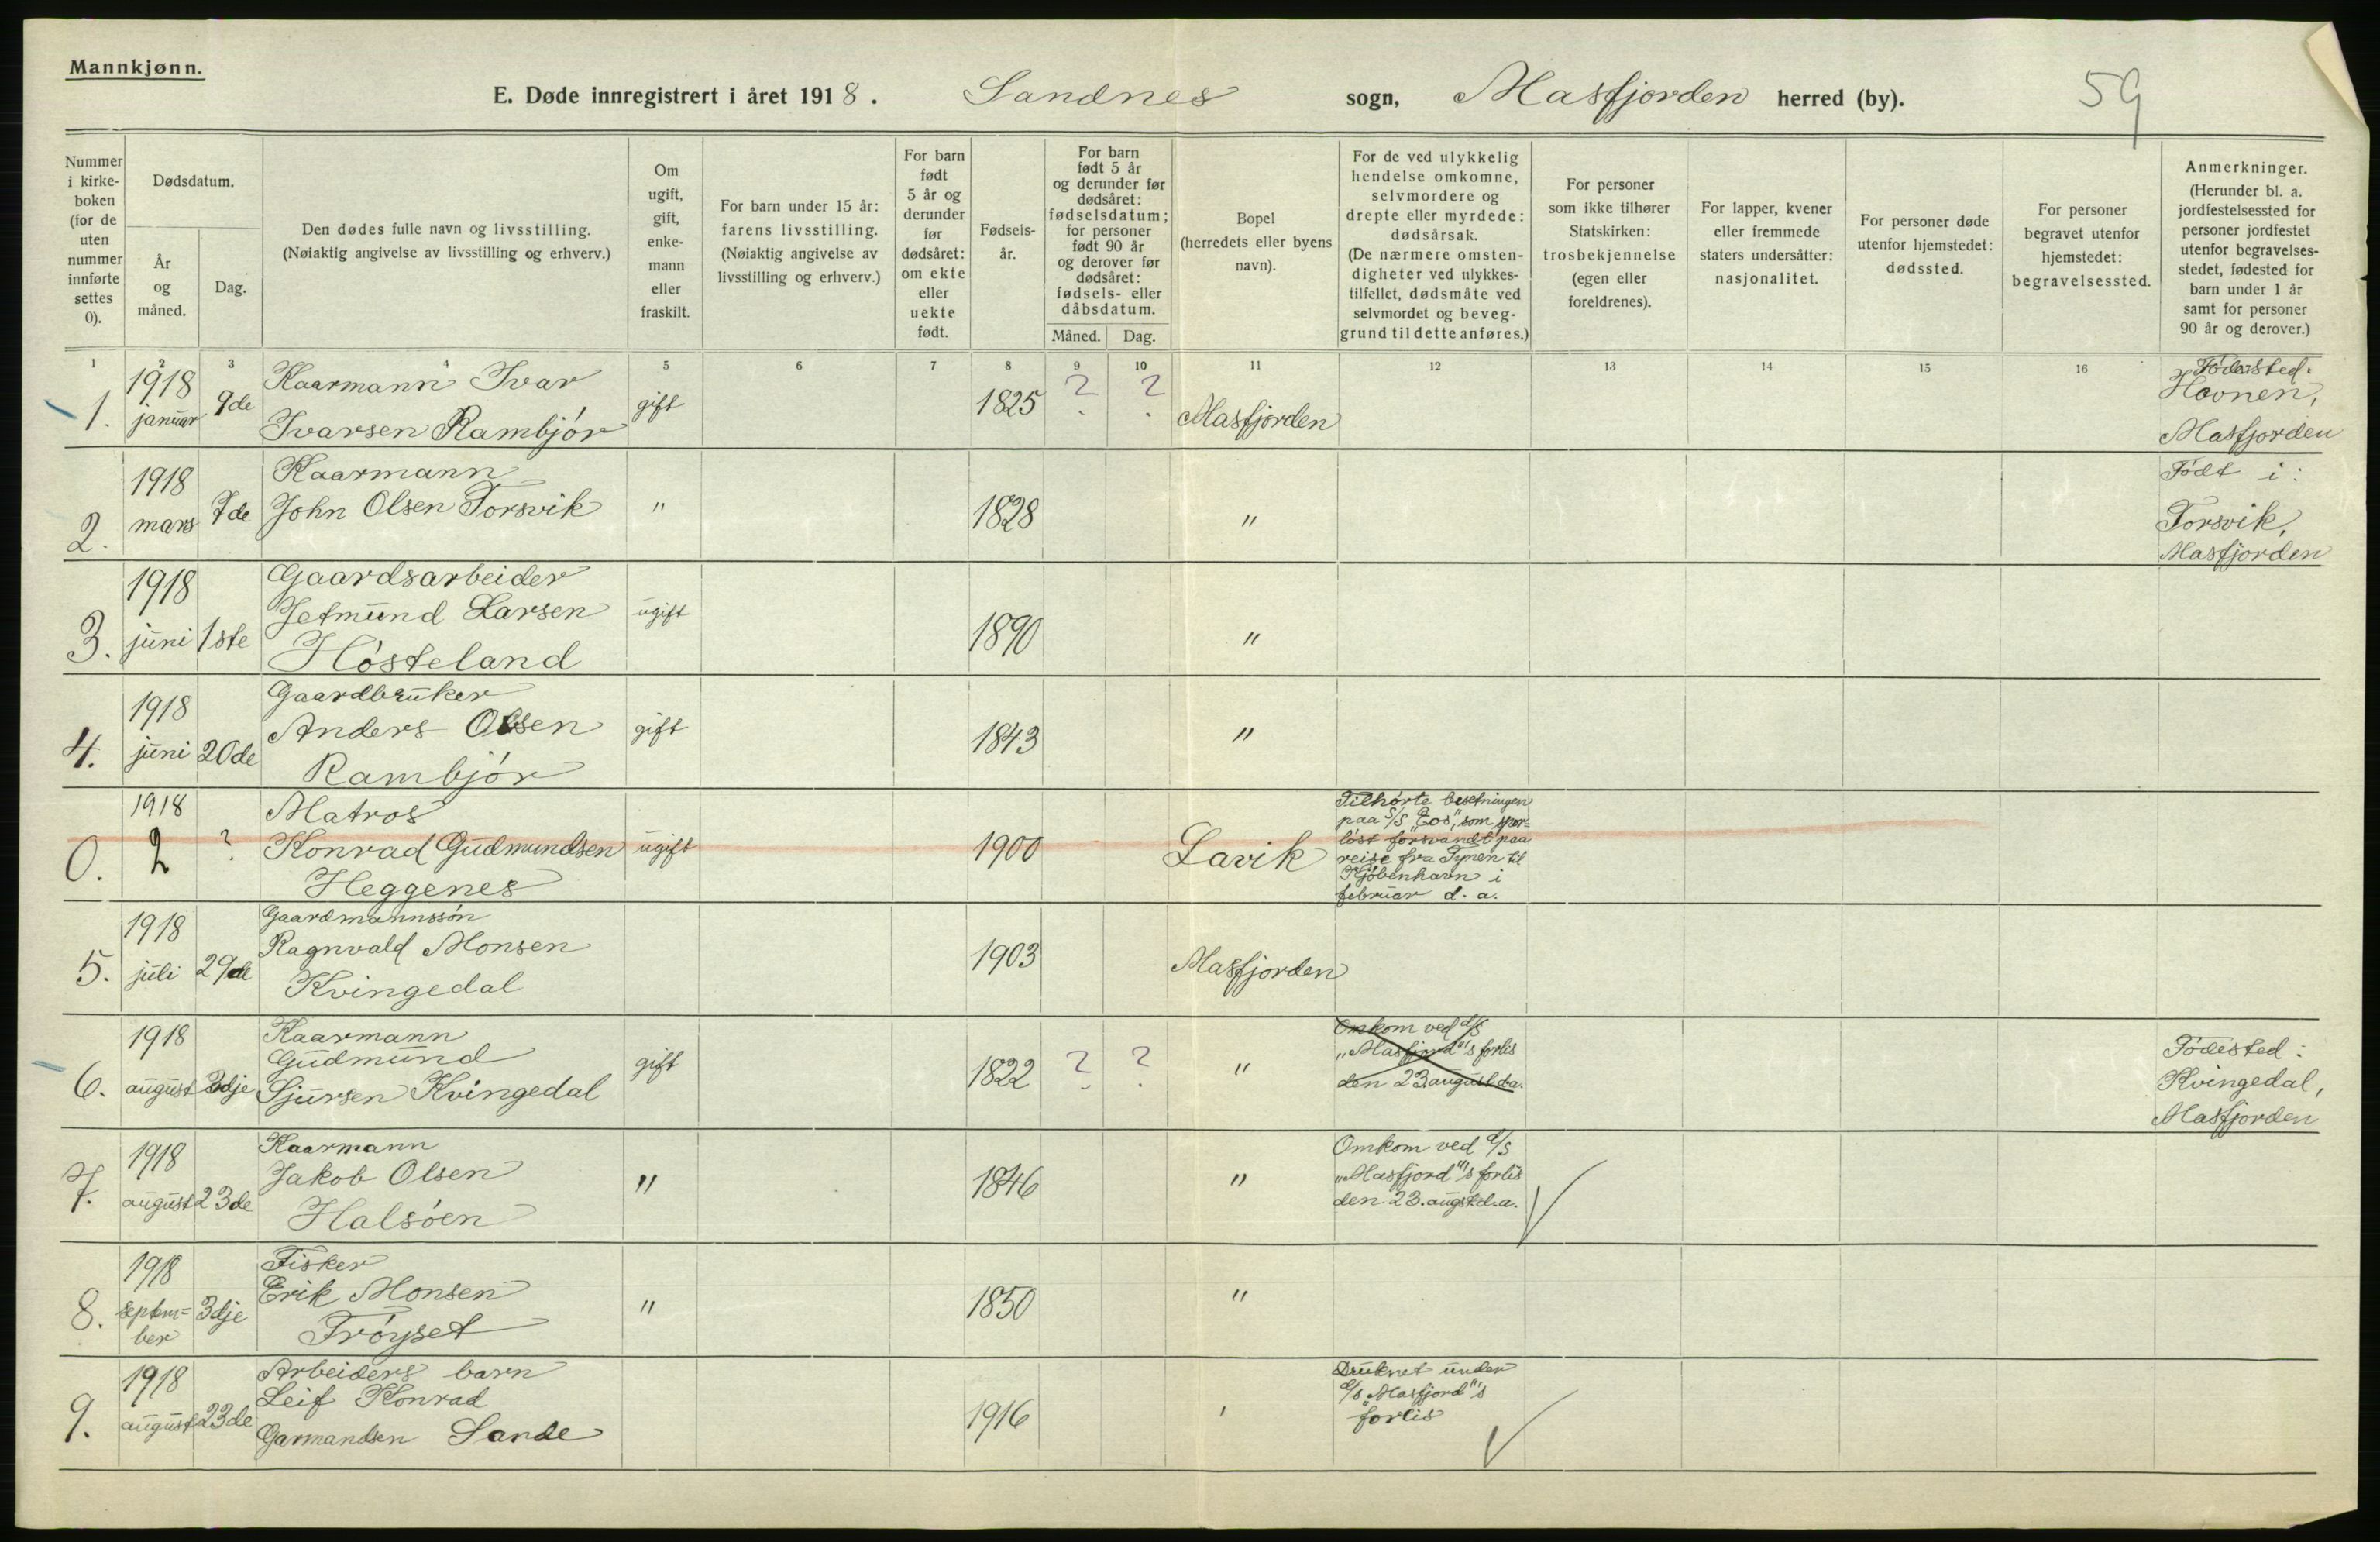 Mannkjønn.
E. Døde innregistrert i året 1918. Sandnes sogn, Masfjorden herred (by). 59
Nummer i kirke- boken (for de uten nummer innførte settes 0).
Dødsdatum.
År og måned.
Dag.
Den dødes fulle navn og livsstilling.
(Nøiaktig angivelse av livsstilling og erhverv.)
Om ugift, gift, enke- mann eller fraskilt.
For barn under 15 år: farens livsstilling. (Nøiaktig angivelse av livsstilling og erhverv.)
For barn født 5 år og derunder før dødsåret: om ekte eller uekte født.
Fødsels- år.
For barn født 5 år og derunder før dødsåret: fødselsdatum; for personer født 90 år og derover før dødsåret: fødsels- eller dåbsdatum.
Måned. Dag.
Bopel (herredets eller byens navn).
For de ved ulykkelig hendelse omkomne, selvmordere og drepte eller myrdede: dødsårsak. (De nærmere omsten- digheter ved ulykkes- tilfellet, dødsmåte ved selvmordet og beveg- grund til dette anføres.)
For personer som ikke tilhører Statskirken: trosbekjennelse (egen eller foreldrenes).
For lapper, kvener eller fremmede staters undersåtter: nasjonalitet.
For personer døde utenfor hjemstedet: dødssted.
For personer begravet utenfor hjemstedet: begravelsessted.
Anmerkninger. (Herunder bl. a. jordfestelsessted for personer jordfestet utenfor begravelses- stedet, fødested for barn under 1 år samt for personer 90 år og derover.)
1 2 3 4 5 6 7 8 9 10 11 12 13 14 15 16
1. 1918 januar 9de Kaarmann Ivar Ivarsen Rambjör gift 1825 ? ? Masfjorden Födested: Hovnen, Masfjorden
2. 1918 mars 7de Kaarmann John Olsen Torsvik " 1828 " Födt i: Torsvik, Masfjorden
3. 1918 juni 1ste Gaardsarbeider Jetmund Larsen Hösteland ugift 1890 "
4. 1918 juni 20de Gaardbruker Anders Olsen Rambjör gift 1843 "
0. 1918 2 ? Matros Konrad Gudmundsen Heggenes ugift 1900 Lavik Tilhörte besetningen paa S/S "Eos", som spor= löst forsvandt paa reise fra Tynen til Kjöbenhavn i februar d. a.
5. 1918 juli 29de Gaardmannssön Ragnvald Monsen Kvingedal 1903 Masfjorden
6. 1918 august 3dje Kaarmann Gudmund Sjursen Kvingedal gift 1822 ? ? " Omkom ved d/s "Masfjord"'s forlis den 23. august d.a. Födested: Kvingedal, Masfjorden
7. 1918 august 23de Kaarmann Jakob Olsen Halsöen " 1846 " Omkom ved d/s "Masfjord"'s forlis den 23. augst d.a.
8. 1918 septem= ber 3dje Fisker Erik Monsen Tröyset " 1850 "
9. 1918 august 23de Arbeiders barn Leif Konrad Garmandsen Sande 1916 ' Druknet under d/s "Masfjord"'s forlis